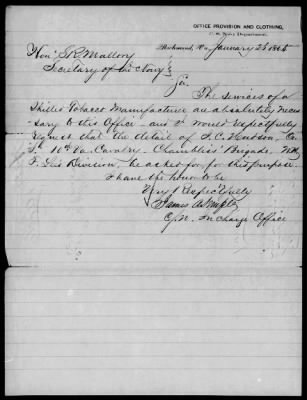 OFFICE PROVISION AND CLOTHING,
C. S. Navy Department,
Richmond, Va, January 25 1865
Hon. S R Mallory
Secretary of the Navy
Sir
The services of a
Skilled Tobacco Manufacturer are absolutely neces
sary to this Office and I would respectfully
request that the detail of F. C. Hudson, Co
10th Va. Cavalry Chambliss' Brigade W H
F. Lee Division be asked for for this purpose.
I have the honor to be
Very Respectfully
James A Semple
In charge Office